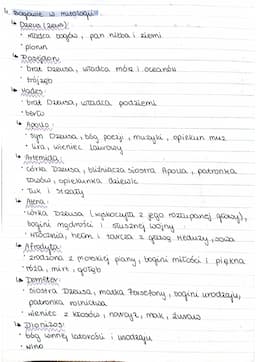 Bogowie w mitologii:
Dzeus (Zeus):
władca bogów, pan nieba i ziemi
piorun
Posejdon:
brat Dzeusa, władca mórz i oceanów
trójząb
Hades:
brat Dzeusa, władca podziemi
berło
Apollo:
syn Dzeusa, bóg poezji, muzyki, opiekun muz
lira, wieniec laurowy
Artemida:
córka Dzeusa, bliźniacza siostra Apolla, patronka
łowów, opiekunka dziewic
łuk i strzały
Atena:
córka Dzeusa (wyskoczyła z jego rozłupanej głowy),
bogini mądrości i słusznej wojny
włócznia, hełm i tarcza z głową Meduzy, sowa
Afrodyta:
zrodzona z morskiej piany, bogini miłości i piękna
róża, mirt, gołąb
Demeter:
siostra Dzeusa, matka Persefony, bogini urodzaju,
patronka rolnictwa
wieniec z kłosów, narcyz, mak, żuraw
Dionizos:
bóg winnej latorośli i urodzaju
wino